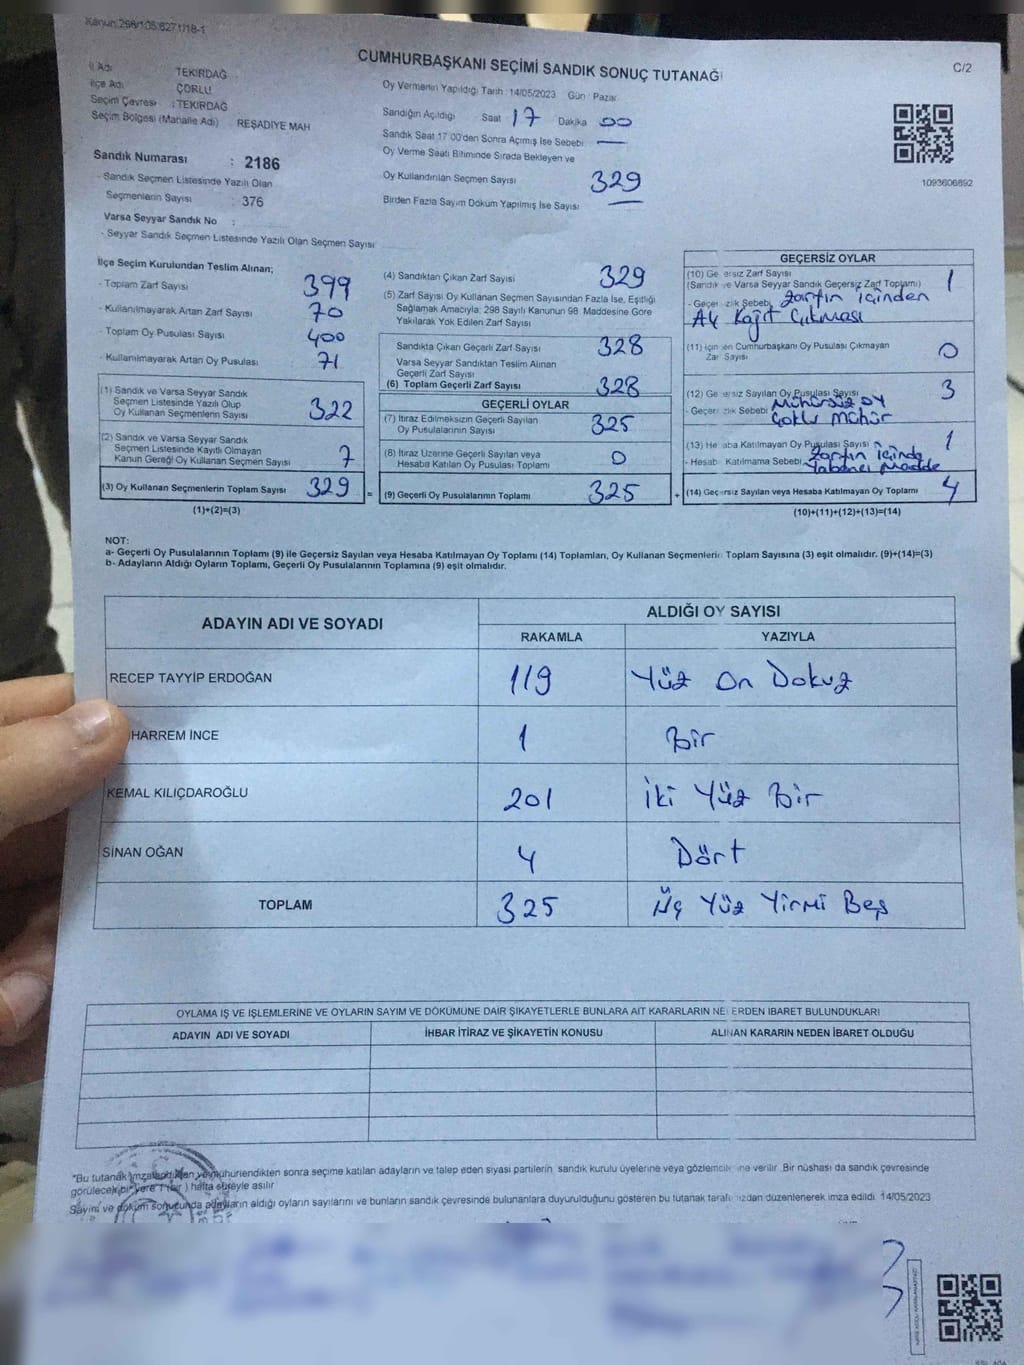 Kanun:298/105:6271/18-1
CUMHURBAŞKANI SEÇİMİ SANDIK SONUÇ TUTANAĞI
C/2
İl Adı TEKİRDAĞ
İlçe Adı ÇORLU
Seçim Çevresi : TEKİRDAĞ
Seçim Bölgesi (Mahalle Adı) REŞADİYE MAH
Sandık Numarası : 2186
- Sandık Seçmen Listesinde Yazılı Olan
Seçmenlerin Sayısı : 376
Varsa Seyyar Sandık No :
- Seyyar Sandık Seçmen Listesinde Yazılı Olan Seçmen Sayısı
Oy Vermenin Yapıldığı Tarih : 14/05/2023 Gün : Pazar
Sandığın Açıldığı Saat 17 Dakika 00
Sandık Saat 17:00'den Sonra Açılmış İse Sebebi —
Oy Verme Saati Bitiminde Sırada Bekleyen ve
Oy Kullandırılan Seçmen Sayısı 329
Birden Fazla Sayım Döküm Yapılmış İse Sayısı —
1093606892
İlçe Seçim Kurulundan Teslim Alınan;
- Toplam Zarf Sayısı 399
- Kullanılmayarak Artan Zarf Sayısı 70
- Toplam Oy Pusulası Sayısı 400
- Kullanılmayarak Artan Oy Pusulası 71
(1) Sandık ve Varsa Seyyar Sandık
Seçmen Listesinde Yazılı Olup
Oy Kullanan Seçmenlerin Sayısı 322
(2) Sandık ve Varsa Seyyar Sandık
Seçmen Listesinde Kayıtlı Olmayan
Kanun Gereği Oy Kullanan Seçmen Sayısı 7
(3) Oy Kullanan Seçmenlerin Toplam Sayısı 329 =
(1)+(2)=(3)
(4) Sandıktan Çıkan Zarf Sayısı 329
(5) Zarf Sayısı Oy Kullanan Seçmen Sayısından Fazla İse, Eşitliği
Sağlamak Amacıyla; 298 Sayılı Kanunun 98. Maddesine Göre
Yakılarak Yok Edilen Zarf Sayısı
Sandıkta Çıkan Geçerli Zarf Sayısı 328
Varsa Seyyar Sandıktan Teslim Alınan
Geçerli Zarf Sayısı
(6) Toplam Geçerli Zarf Sayısı 328
GEÇERLİ OYLAR
(7) İtiraz Edilmeksizin Geçerli Sayılan
Oy Pusulalarının Sayısı 325
(8) İtiraz Üzerine Geçerli Sayılan veya
Hesaba Katılan Oy Pusulası Toplamı 0
(9) Geçerli Oy Pusulalarının Toplamı 325 +
GEÇERSİZ OYLAR
(10) Ge ersiz Zarf Sayısı
(Sandık ve Varsa Seyyar Sandık Geçersiz Zarf Toplamı) 1
- Geçer zlik Sebebi Zarfın İçinden
Ak Kağıt Çıkması
(11) İçin en Cumhurbaşkanı Oy Pusulası Çıkmayan
Zarf Sayısı 0
(12) Ge ersiz Sayılan Oy Pusulası Sayısı 3
- Geçer zlik Sebebi Mühürsüz oy
Çoklu Mühür
(13) He aba Katılmayan Oy Pusulası Sayısı 1
- Hesab Katılmama Sebebi Zarfın içinde
Yabancı Madde
(14) Geçersiz Sayılan veya Hesaba Katılmayan Oy Toplamı 4
(10)+(11)+(12)+(13)=(14)
NOT:
a- Geçerli Oy Pusulalarının Toplamı (9) ile Geçersiz Sayılan veya Hesaba Katılmayan Oy Toplamı (14) Toplamları, Oy Kullanan Seçmenlerin Toplam Sayısına (3) eşit olmalıdır. (9)+(14)=(3)
b- Adayların Aldığı Oyların Toplamı, Geçerli Oy Pusulalarının Toplamına (9) eşit olmalıdır.
ADAYIN ADI VE SOYADI ALDIĞI OY SAYISI
RAKAMLA YAZIYLA
RECEP TAYYİP ERDOĞAN 119 Yüz On Dokuz
HARREM İNCE 1 Bir
KEMAL KILIÇDAROĞLU 201 İki Yüz Bir
SİNAN OĞAN 4 Dört
TOPLAM 325 Üç Yüz Yirmi Beş
OYLAMA İŞ VE İŞLEMLERİNE VE OYLARIN SAYIM VE DÖKÜMÜNE DAİR ŞİKAYETLERLE BUNLARA AİT KARARLARIN NELERDEN İBARET BULUNDUKLARI
ADAYIN ADI VE SOYADI İHBAR İTİRAZ VE ŞİKAYETİN KONUSU ALINAN KARARIN NEDEN İBARET OLDUĞU
*Bu tutanak imzalandıktan ve mühürlendikten sonra seçime katılan adayların ve talep eden siyasi partilerin sandık kurulu üyelerine veya gözlemcilerine verilir. Bir nüshası da sandık çevresinde
görülecek bir yere 1 (bir) hafta süreyle asılır
Sayım ve döküm sonucunda adayların aldığı oyların sayılarını ve bunların sandık çevresinde bulunanlara duyurulduğunu gösteren bu tutanak tarafımızdan düzenlenerek imza edildi. 14/05/2023